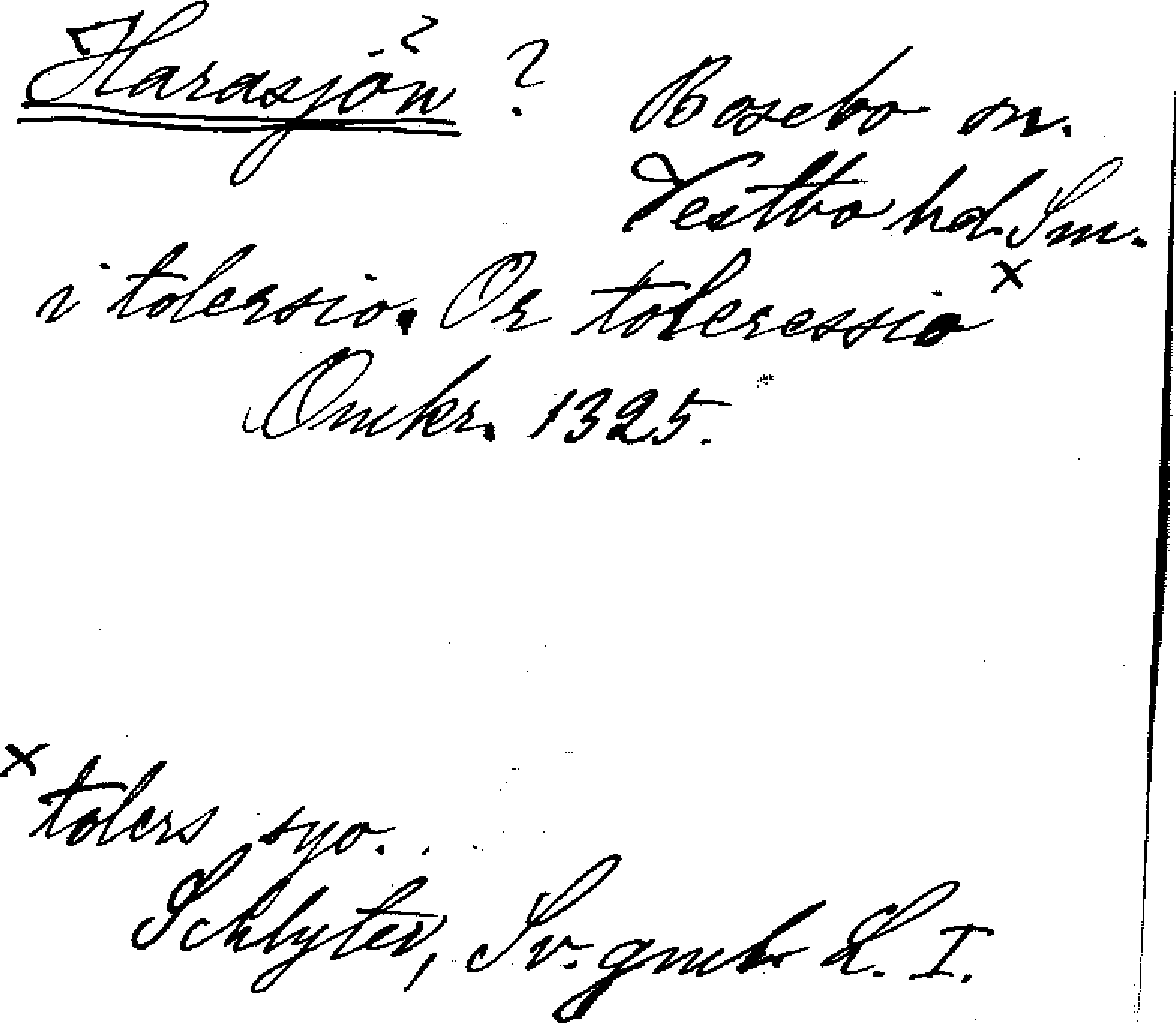 Harasjön? ? Bosebo sn.
Västbo hd. Sm.
i tolersio. Or toleressio x
Omkr. 1325.
x tolers syo.
Schlyter, Sv. gmlr L. I.